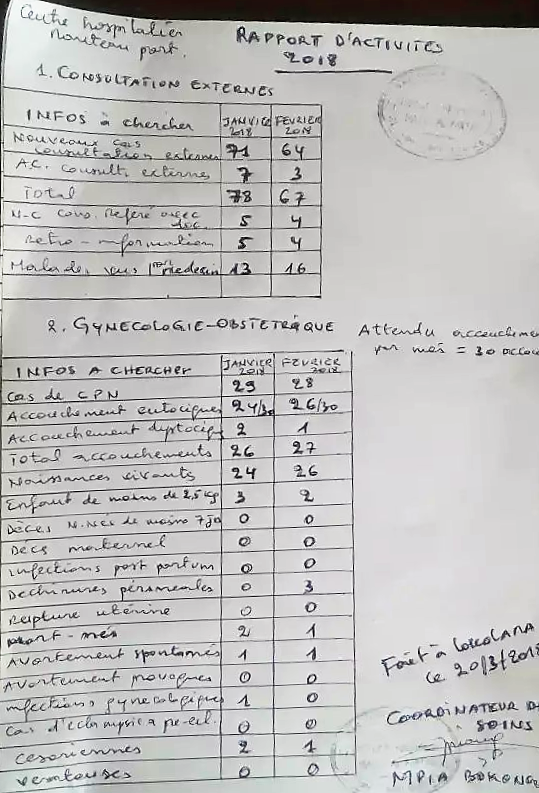 Centre hospitalier
nouveau port.
RAPPORT D'ACTIVITES
2018
1. CONSULTATION EXTERNES
INFOS à chercher JANVIER 2018 FEVRIER 2018
Nouveaux cas consultation externes 71 64
A.C. consult. externes 7 3
Total 78 67
N-C cons. Référé avec doc. 5 4
Retro-information 5 4
Malades vus par medecin 13 16
2. GYNECOLOGIE-OBSTETRIQUE Attendu accouchem
par mois = 30 accou
INFOS A CHERCHER JANVIER 2018 FEVRIER 2018
Cas de CPN 29 28
Accouchement eutocique 24/30 26/30
Accouchement dystociq 2 1
Total accouchements 26 27
Naissances vivants 24 26
Enfant de moins de 2,5 kg 3 2
Décès N.Nés de moins 7jo 0 0
Decs maternel 0 0
infections post partum 0 0
Dechirures périneales 0 3
Rupture utérine 0 0
mort-nés 2 1
Avortement spontanés 1 1
Avortement provoques 0 0
infections gynecologiques 1 0
Cas d'eclampsie 0 0
cesariennes 2 1
ventouses 0 0
Fait à
ce 20/3/2018
COORDINATEUR D
SOINS
MPIA